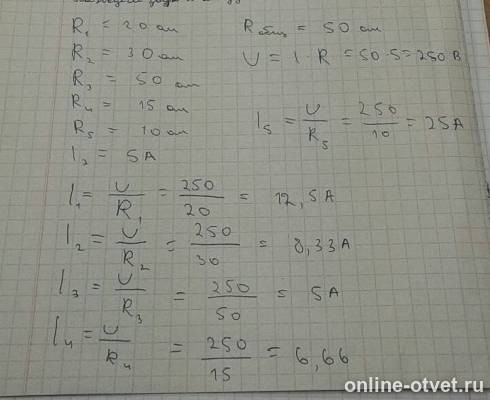 R₁ = 20 ом
R₂ = 30 ом
R₃ = 50 ом
R₄ = 15 ом
R₅ = 10 ом
I₃ = 5A
R общ = 50 ом
U = I · R = 50 · 5 = 250 В
I₅ = U/R₅ = 250/10 = 25A
I₁ = U/R₁ = 250/20 = 12,5A
I₂ = U/R₂ = 250/30 = 8,33A
I₃ = U/R₃ = 250/50 = 5A
I₄ = U/R₄ = 250/15 = 6,66
online-otvet.ru